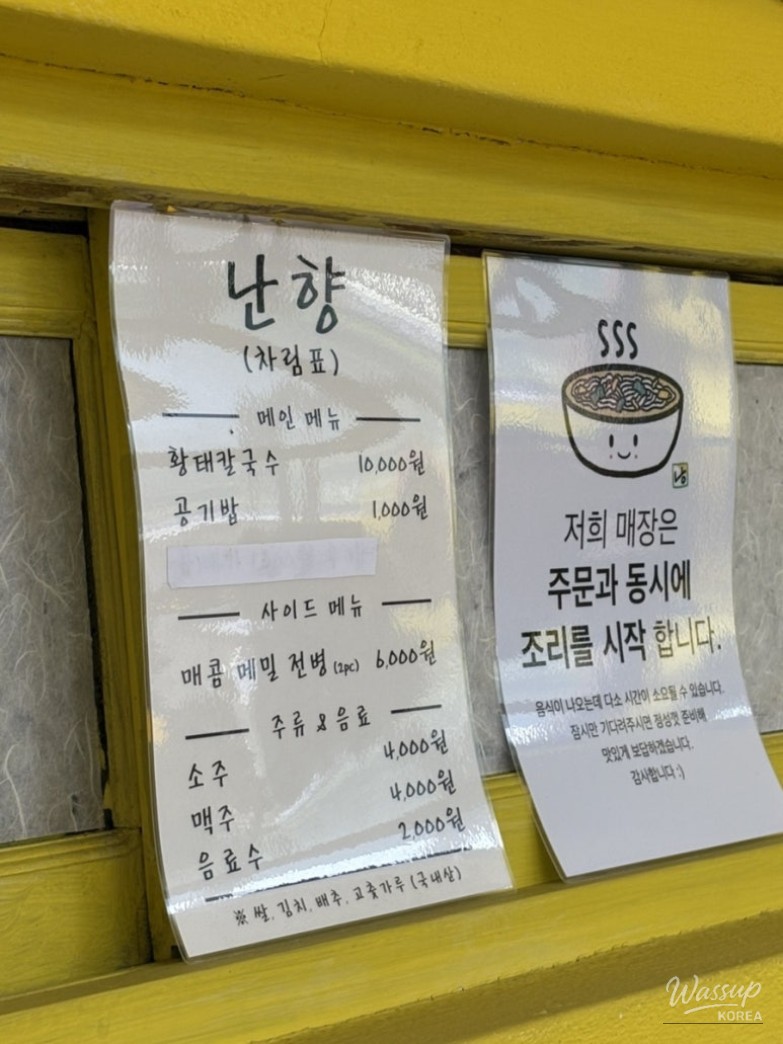 난향
(차림표)
메인 메뉴
황태칼국수 10,000원
공기밥 1,000원
사이드 메뉴
매콤 메밀 전병 (2pc) 6,000원
주류 & 음료
소주 4,000원
맥주 4,000원
음료수 2,000원
※ 쌀, 김치, 배추, 고춧가루 (국내산)
저희 매장은
주문과 동시에
조리를 시작 합니다.
음식이 나오는데 다소 시간이 소요될 수 있습니다.
잠시만 기다려주시면 정성껏 준비해
맛있게 보답하겠습니다.
감사합니다 :)
Wassup
KOREA